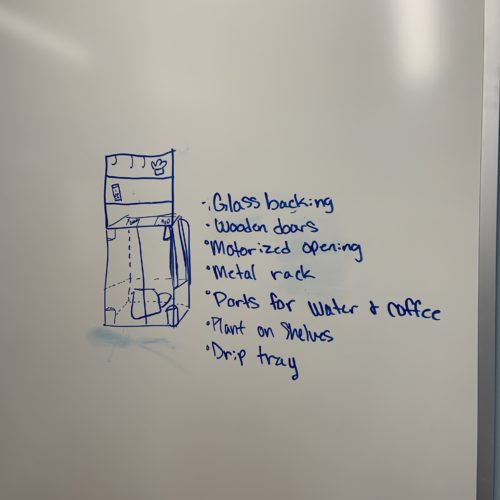 Glass backing
Wooden doors
Motorized opening
Metal rack
Ports for water & coffee
Plant on shelves
Drip tray